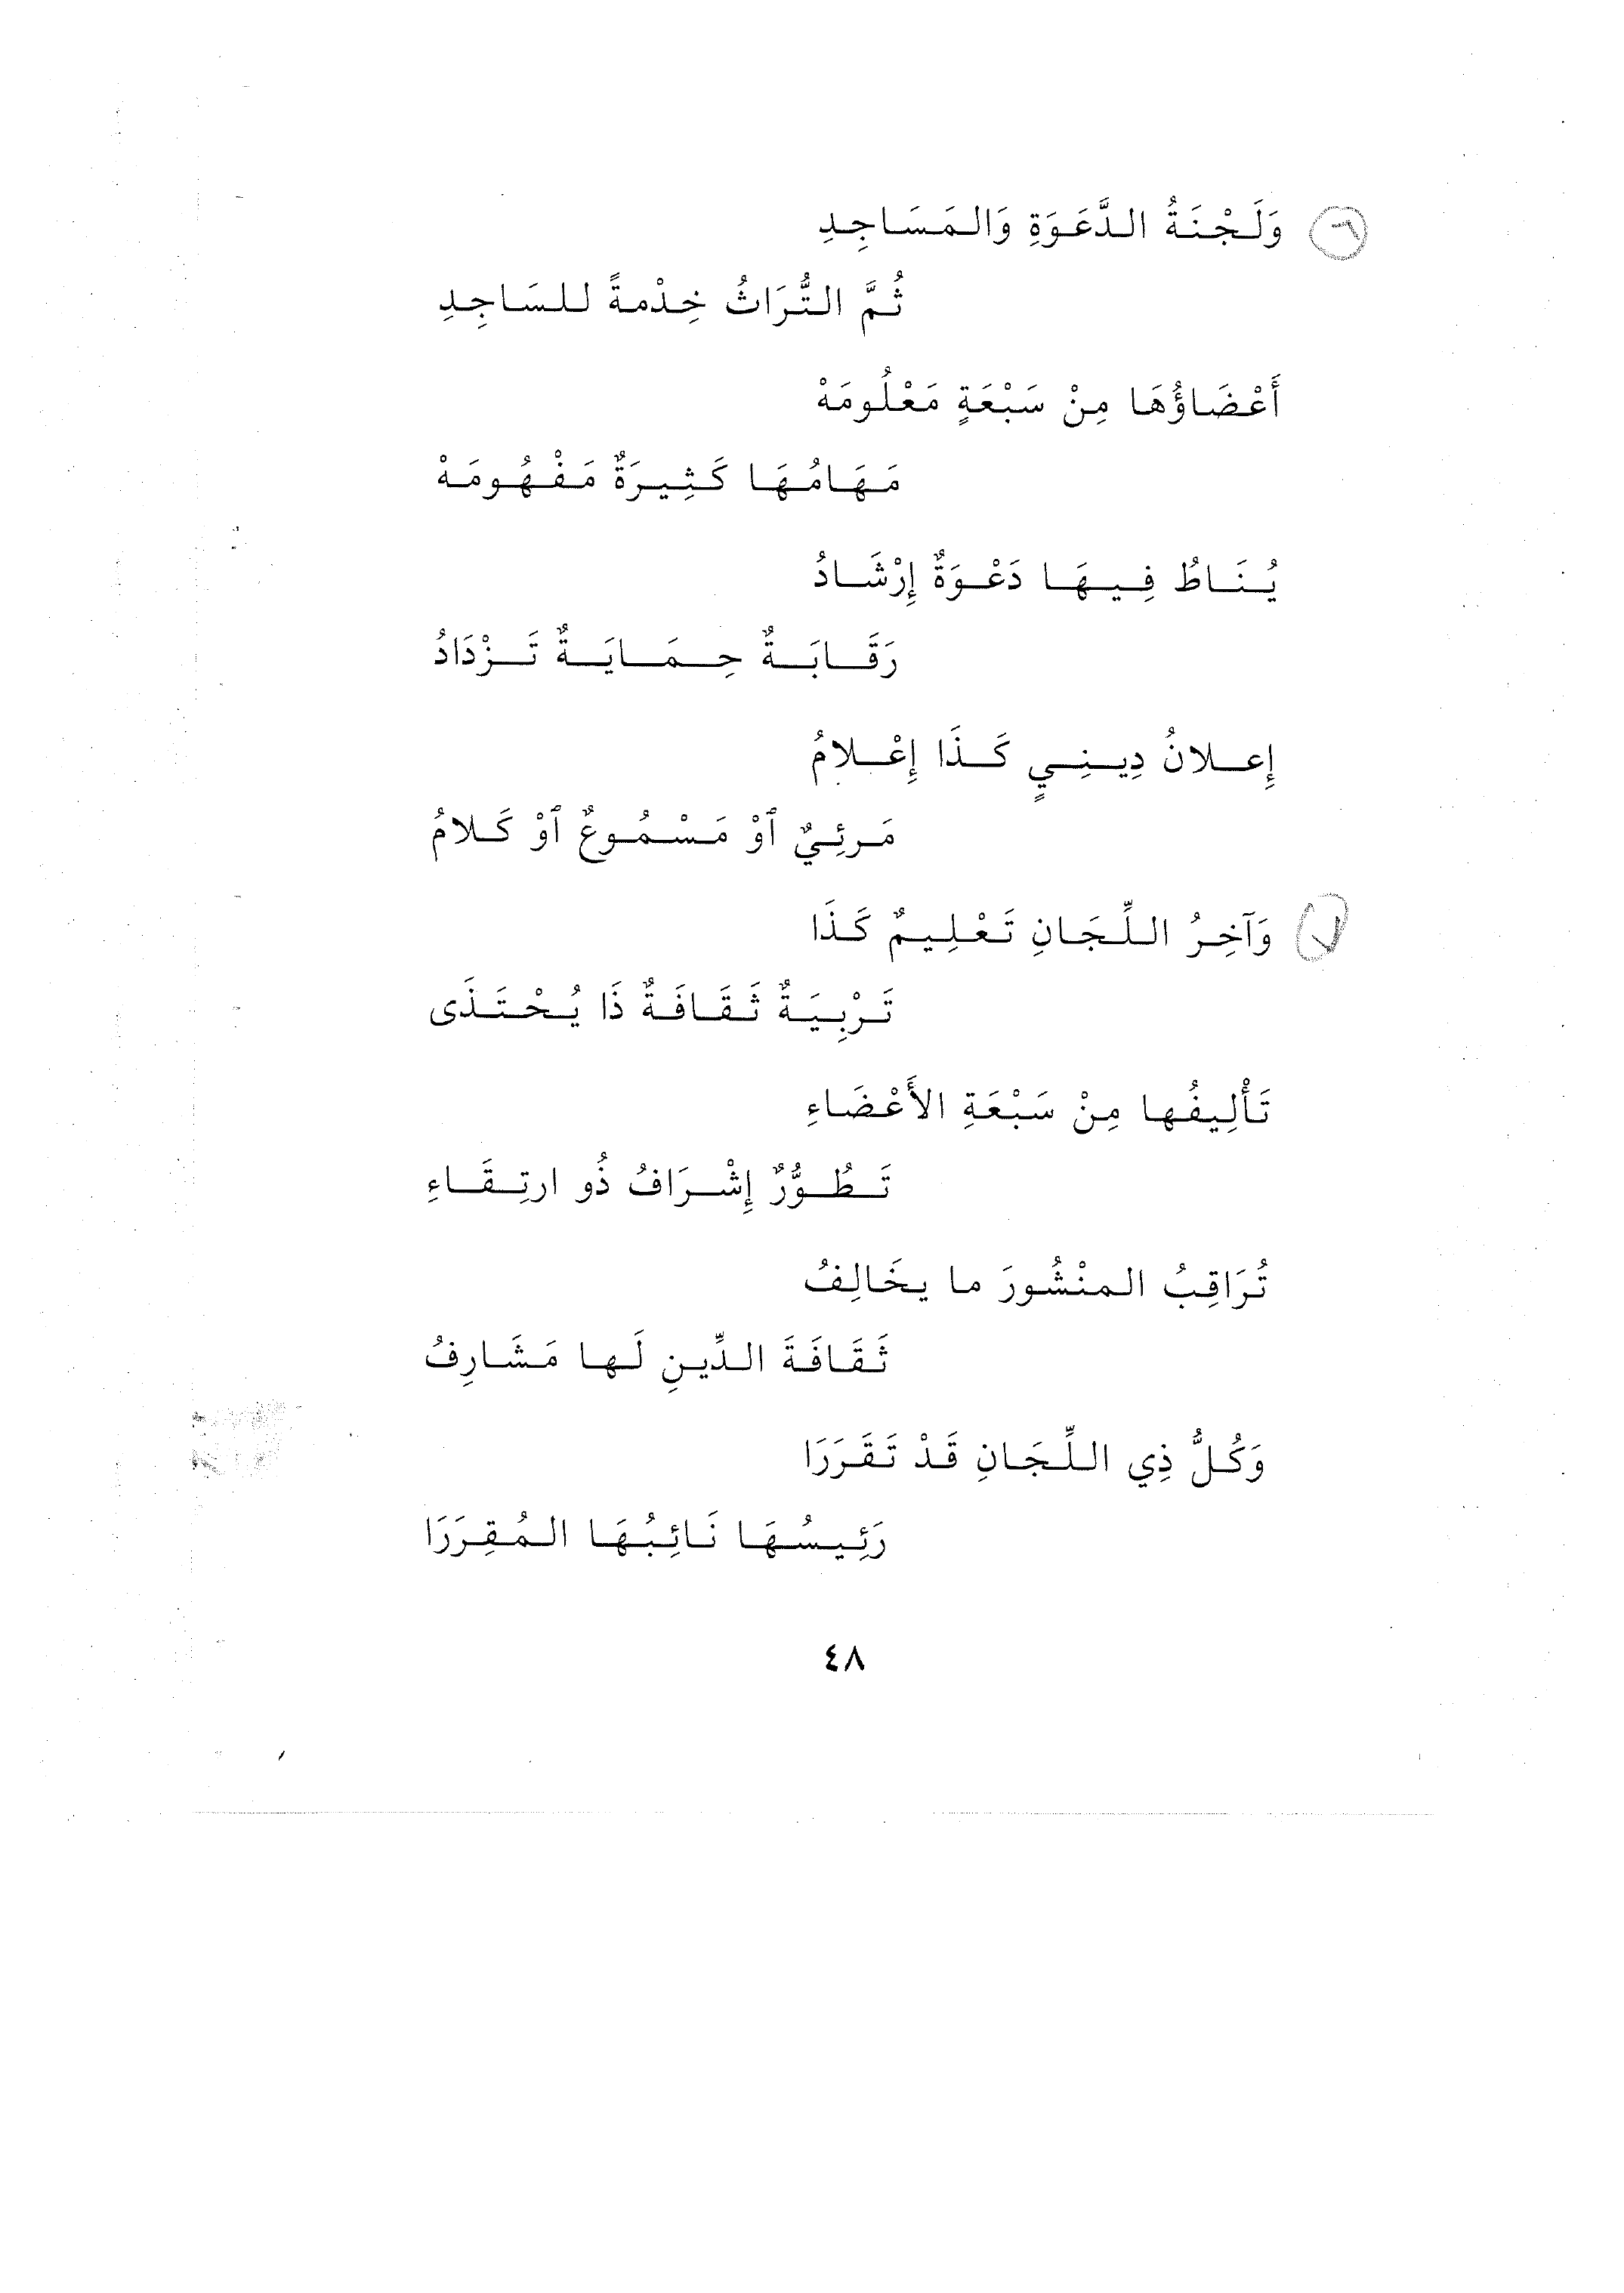 وَلَجْنَةُ الدَّعَوَةِ وَالمَسَاجِدِ
ثُمَّ التُّرَاثُ خِدْمةً للسَاجِدِ
أَعْضَاؤُهَا مِنْ سَبْعَةٍ مَعْلُومَهْ
مَهَامُهَا كَثِيرَةٌ مَفْهُومَهْ
يُنَاطُ فِيهَا دَعْوَةٌ إِرْشَادُ
رَقَابَةٌ حِمَايَةٌ تَزْدَادُ
إِعلانُ دِينِيٍ كَذَا إِعْلامُ
مَرئِيٌ ٱوْ مَسْمُوعٌ ٱوْ كَلامُ
وَآخِرُ اللِّجَانِ تَعْلِيمٌ كَذَا
تَرْبِيَةٌ ثَقَافَةٌ ذَا يُحْتَذَى
تَأْلِيفُها مِنْ سَبْعَةِ الأَعْضَاءِ
تَطُوُّرٌ إِشْرَافُ ذُو ارتِقَاءِ
تُرَاقِبُ المنْشُورَ ما يخَالِفُ
ثَقَافَةَ الدِّينِ لَها مَشَارِفُ
وَكُلُّ ذِي اللِّجَانِ قَدْ تَقَرَرَا
رَئِيسُهَا نَائِبُهَا المُقِرَرَا
٤٨